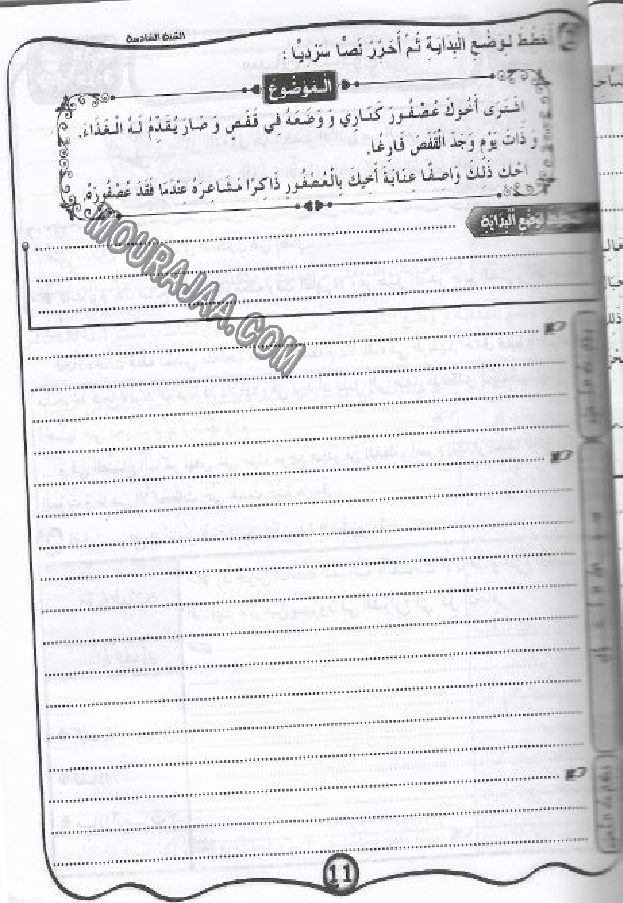 السنة السادسة
أُخَطِّطُ لِوَضْعِ الْبِدَايَةِ ثُمَّ أُحَرِّرُ نَصًّا سَرْدِيًّا :
الْمَوْضُوعُ
اشْتَرَى أَخُوكَ عُصْفُورَ كَنَارِي وَ وَضَعَهُ فِي قَفَصٍ وَ صَارَ يُقَدِّمُ لَهُ الْغِذَاءَ.
وَ ذَاتَ يَوْمٍ وَجَدَ الْقَفَصَ فَارِغًا.
احْكِ ذَلِكَ وَاصِفًا عِنَايَةَ أَخِيكَ بِالْعُصْفُورِ ذَاكِرًا مَشَاعِرَهُ عِنْدَمَا فَقَدَ عُصْفُورَهُ.
لوَضْعِ الْبِدَايَةِ
MOURAJAA.COM
11